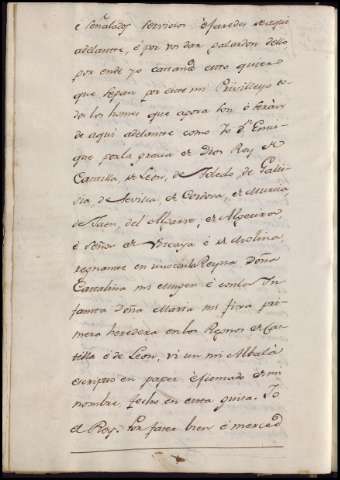 e señalados servicios è faredes de aqui
adelantre, é por vos dar galardon dello
por ende yo catando esto quiero
que sepan por este mi Privilleyo to-
dos los homes que agora son é seràn
de aqui adelantre como Yo Dⁿ Enrri-
que por la gracia de Dios Rey de
Castilla, de Leon, de Toledo, de Galli-
cia, de Sevilla, de Cordova, de Murcia,
de Jaen, del Algarve, de Algecira
é Señor de Vizcaya é de Molina,
regnante en uno con la Reyna Doña
Cattalina mi muger é con la In-
fanta Doña Maria mi fixa pri-
mera heredera en los Regnos de Cas-
tilla é de Leon, vi un mi Albalà
escripto en paper é firmado de mi
nombre, fecho en esta guisa. Yo
el Rey. Por facer bien é merced